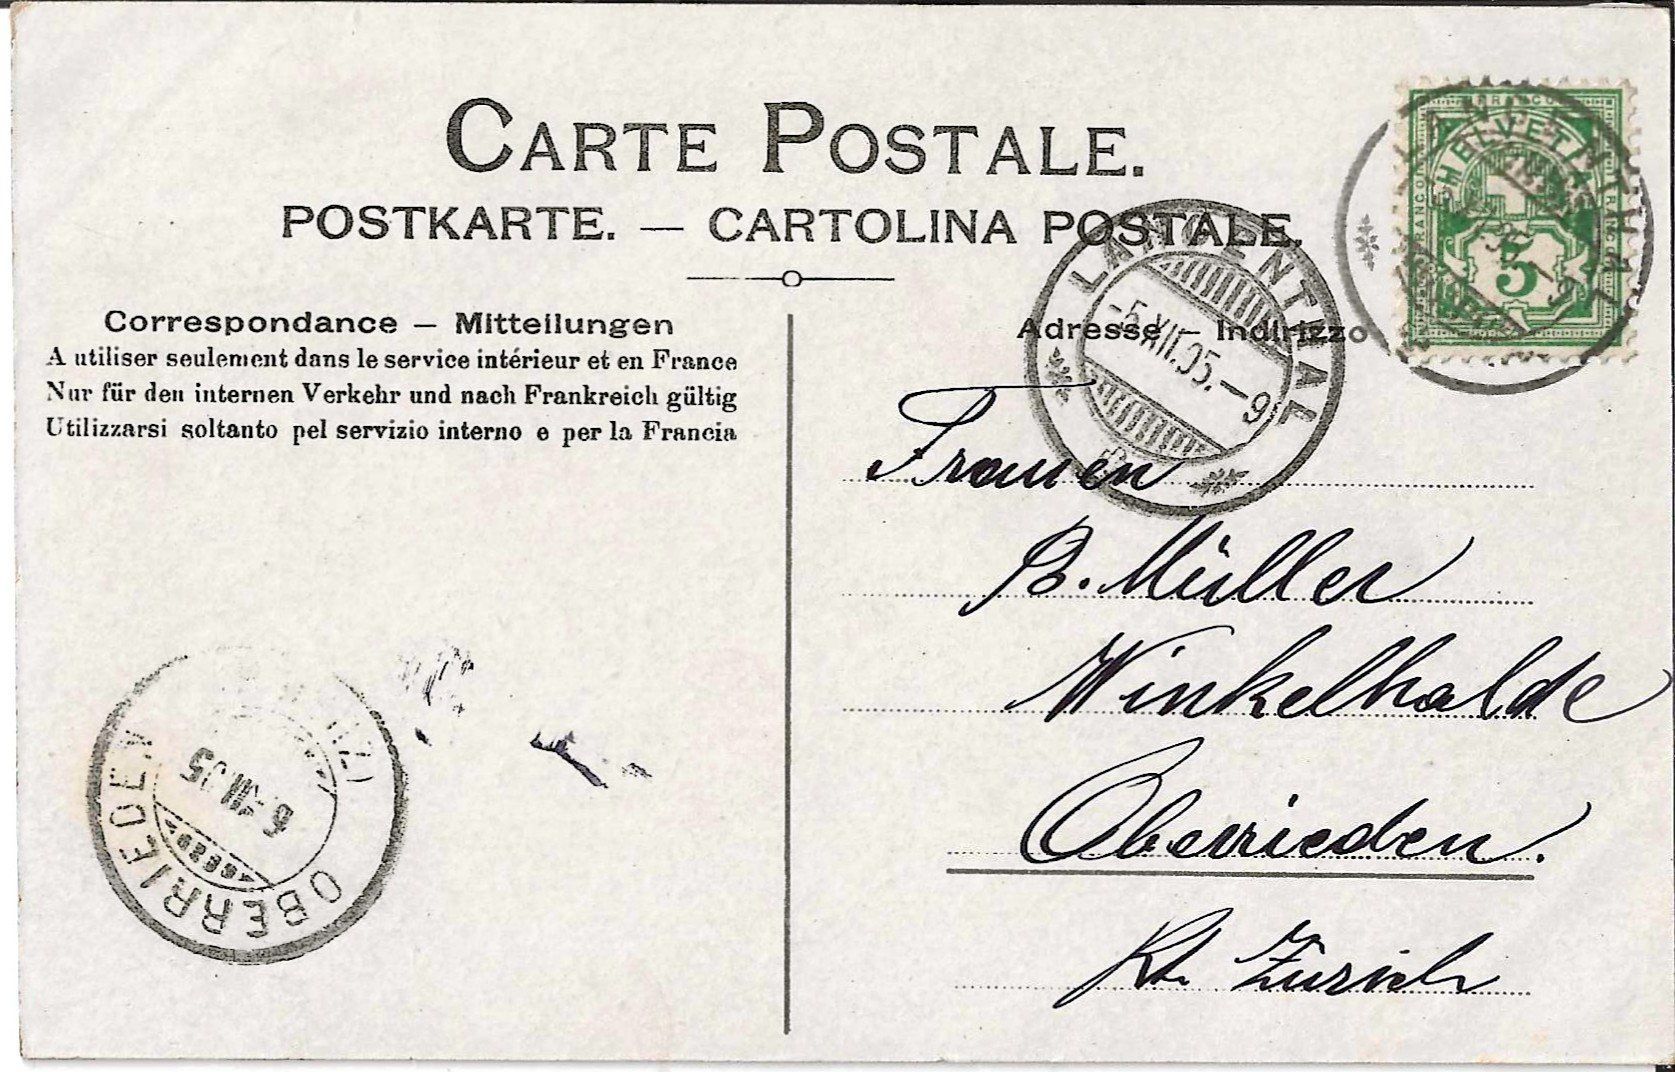 CARTE POSTALE.
POSTKARTE. — CARTOLINA POSTALE.
Correspondance — Mitteilungen
A utiliser seulement dans le service intérieur et en France
Nur für den internen Verkehr und nach Frankreich gültig
Utilizzarsi soltanto pel servizio interno e per la Francia
Adresse — Indirizzo
FRANCO
HELVETIA
5
LANGENTHAL
LANGENTHAL
-5.XII.05.—9
Frauen
B. Müller
Winkelhalde
Oberrieden.
Kt. Zürich
OBERRIEDEN
6.XII.05